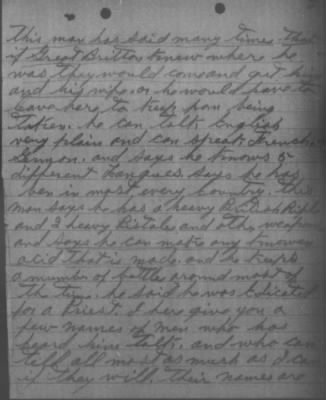 this man has said many times that
if Great Britton knew where he
was they would come and get him
and his wife. or he would have to
leave here to keep from being
taken. he can talk English
very plain and can speak french,
German. and says he knows 5
different tongues. says he has
ben in most every Country. this
man says he has a heavy British Rifle
and 2 heavy Pistales and other weapons
and says he can make any knowen
acid that is made and he keeps
a number of bottle around most of
the time. he said he was Edicated
for a Priest. I here give you a
few names of men who has
heard him talk. and who can
tell all most as much as I can
if they will. Their names are